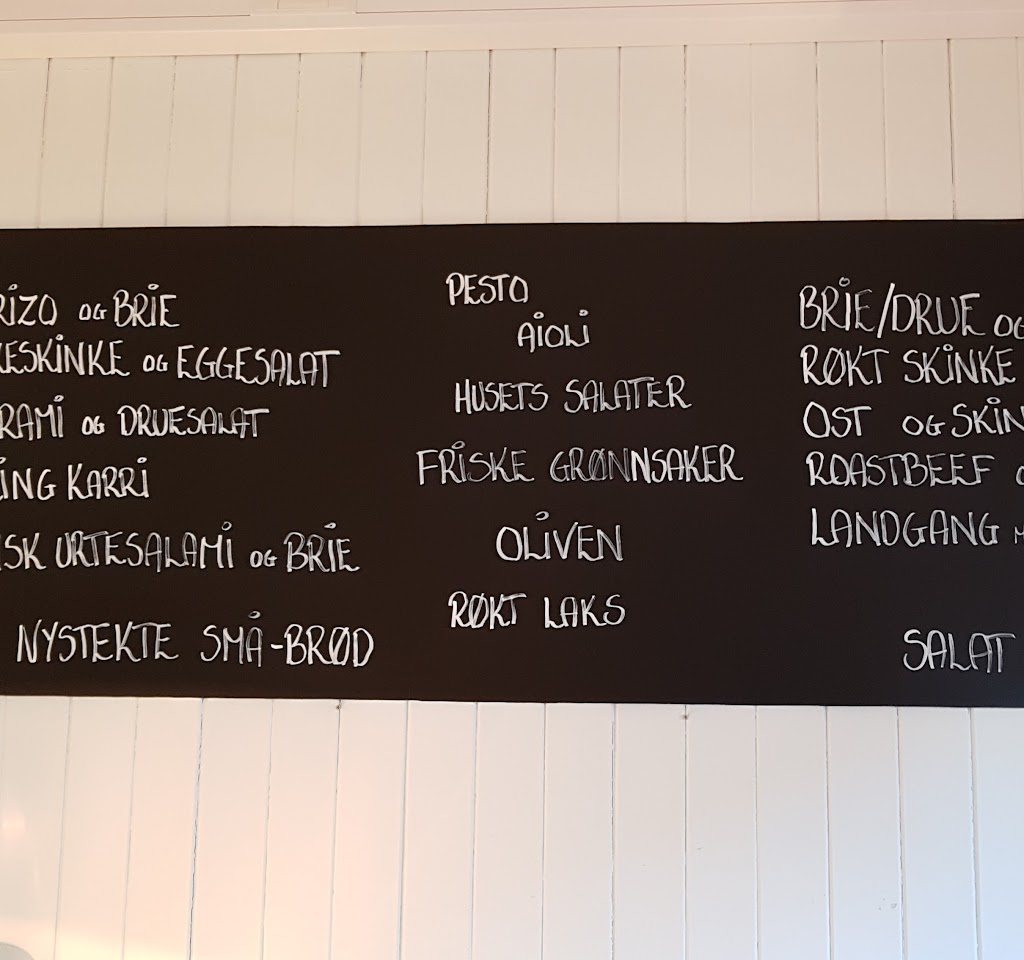 RIZO OG BRIE
KESKINKE OG EGGESALAT
RAMI OG DRUESALAT
ING KARRI
ISK URTESALAMI OG BRIE
NYSTEKTE SMÅ-BRØD
PESTO
AIOLI
HUSETS SALATER
FRISKE GRØNNSAKER
OLIVEN
RØKT LAKS
BRIE/DRUE OG
RØKT SKINKE
OST OG SKIN
ROASTBEEF
LANDGANG
SALAT